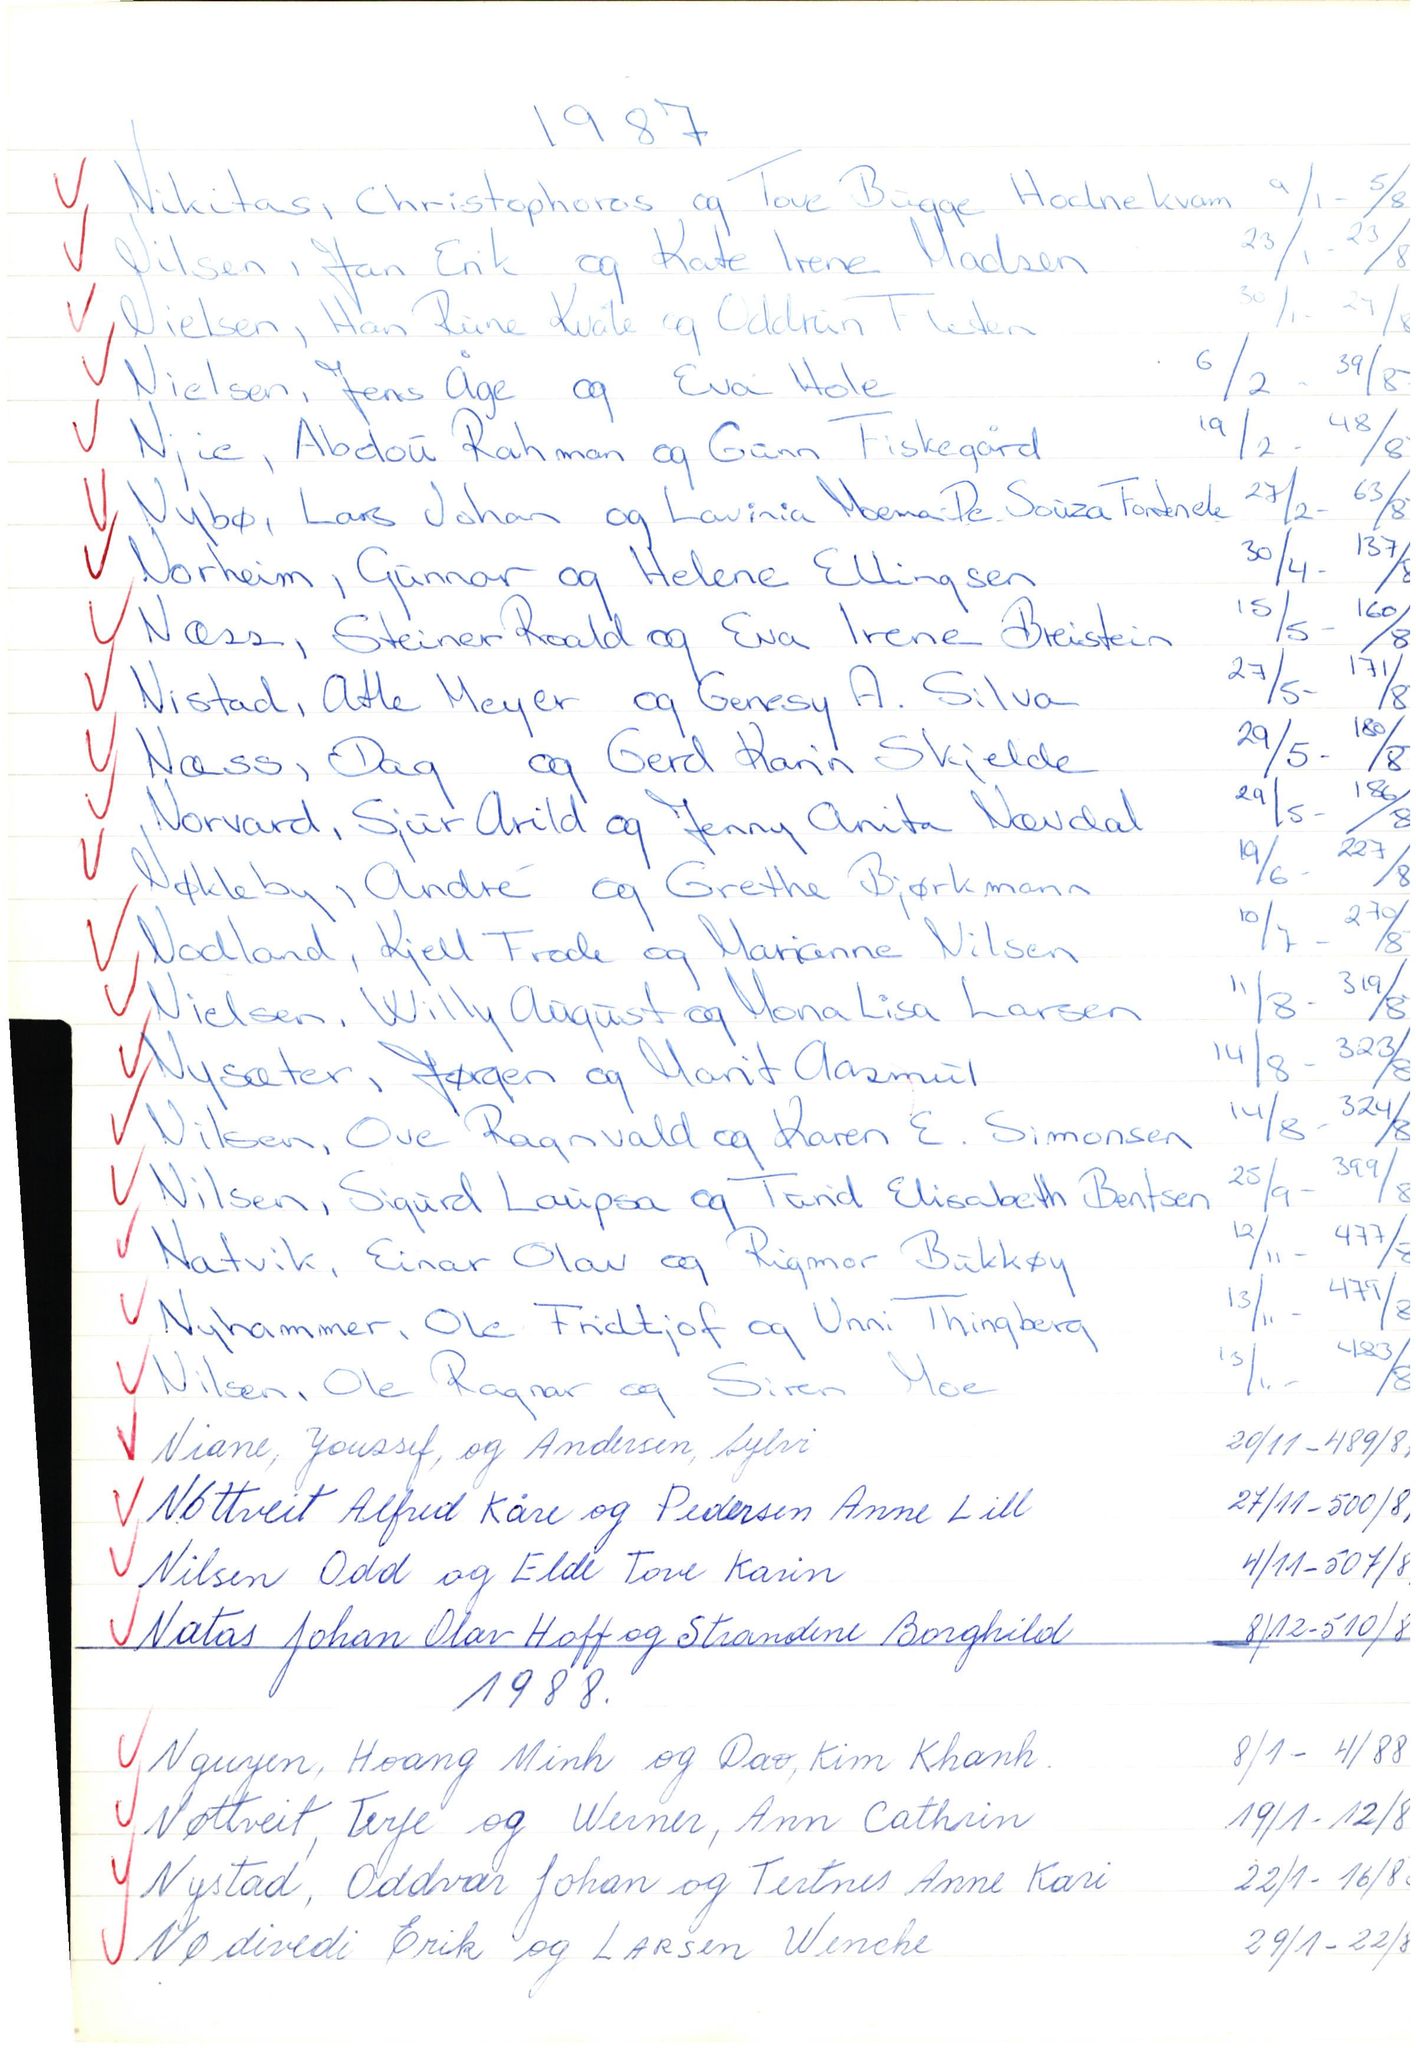 1987
Nikitas, Christophoros og Tove Bugge Hodnekvam 9/1 - 5/8
Nilsen, Jan Erik og Kate Irene Madsen 23/1 - 23/8
Nielsen, Han Rune Kvåle og Oddrun Flesten 30/1 - 27/8
Nielsen, Jens Åge og Eva Hole 6/2 - 39/8
Njie, Abdou Rahman og Gunn Fiskegård 19/2 - 48/8
Nybø, Lars Johan og Lavinia Moema De Souza 27/2 - 63/8
Norheim, Gunnar og Helene Ellingsen 30/4 - 137/8
Næss, Steiner Roald og Eva Irene Breistein 15/5 - 160/8
Nistad, Atle Meyer og Genesy A. Silva 27/5 - 171/8
Næss, Dag og Gerd Karin Skjelde 29/5 - 180/8
Norvard, Sjur Arild og Jenny Anita Nævdal 29/5 - 186/8
Nøkleby, André og Grethe Bjørkmann 19/6 - 227/8
Nodland, Kjell Frode og Marianne Nilsen 10/7 - 270/8
Nielsen, Willy August og Mona Lisa Larsen 11/8 - 319/8
Nysæter, Jørgen og Marit Aasmul 14/8 - 323/8
Nilsen, Ove Ragnvald og Karen E. Simonsen 14/8 - 324/8
Nilsen, Sigurd Laupsa og Turid Elisabeth Bentsen 25/9 - 399/8
Natvik, Einar Olav og Rigmor Bukkøy 12/11 - 477/8
Nyhammer, Ole Fridtjof og Unni Thingberg 13/11 - 479/8
Nilsen, Ole Ragnar og Siren Moe 13/11 - 483/8
Niane, Youssef, og Andersen, Sylvi 20/11 - 489/8
Nøttveit Alfred Kåre og Pedersen Anne Lill 27/11 - 500/8
Nilsen Odd og Elde Tove Karin 4/11 - 507/8
Natås Johan Olav Hoff og Strandene Borghild 8/12 - 510/8
1988.
Nguyen, Hoang Minh og Dao, Kim Khanh. 8/1 - 4/88
Nøttveit, Terje og Werner, Ann Cathrin 19/1 - 12/8
Nystad, Oddvar Johan og Tertnes Anne Kari 22/1 - 16/8
Nødivedi Erik og LARSEN Wenche 29/1 - 22/8